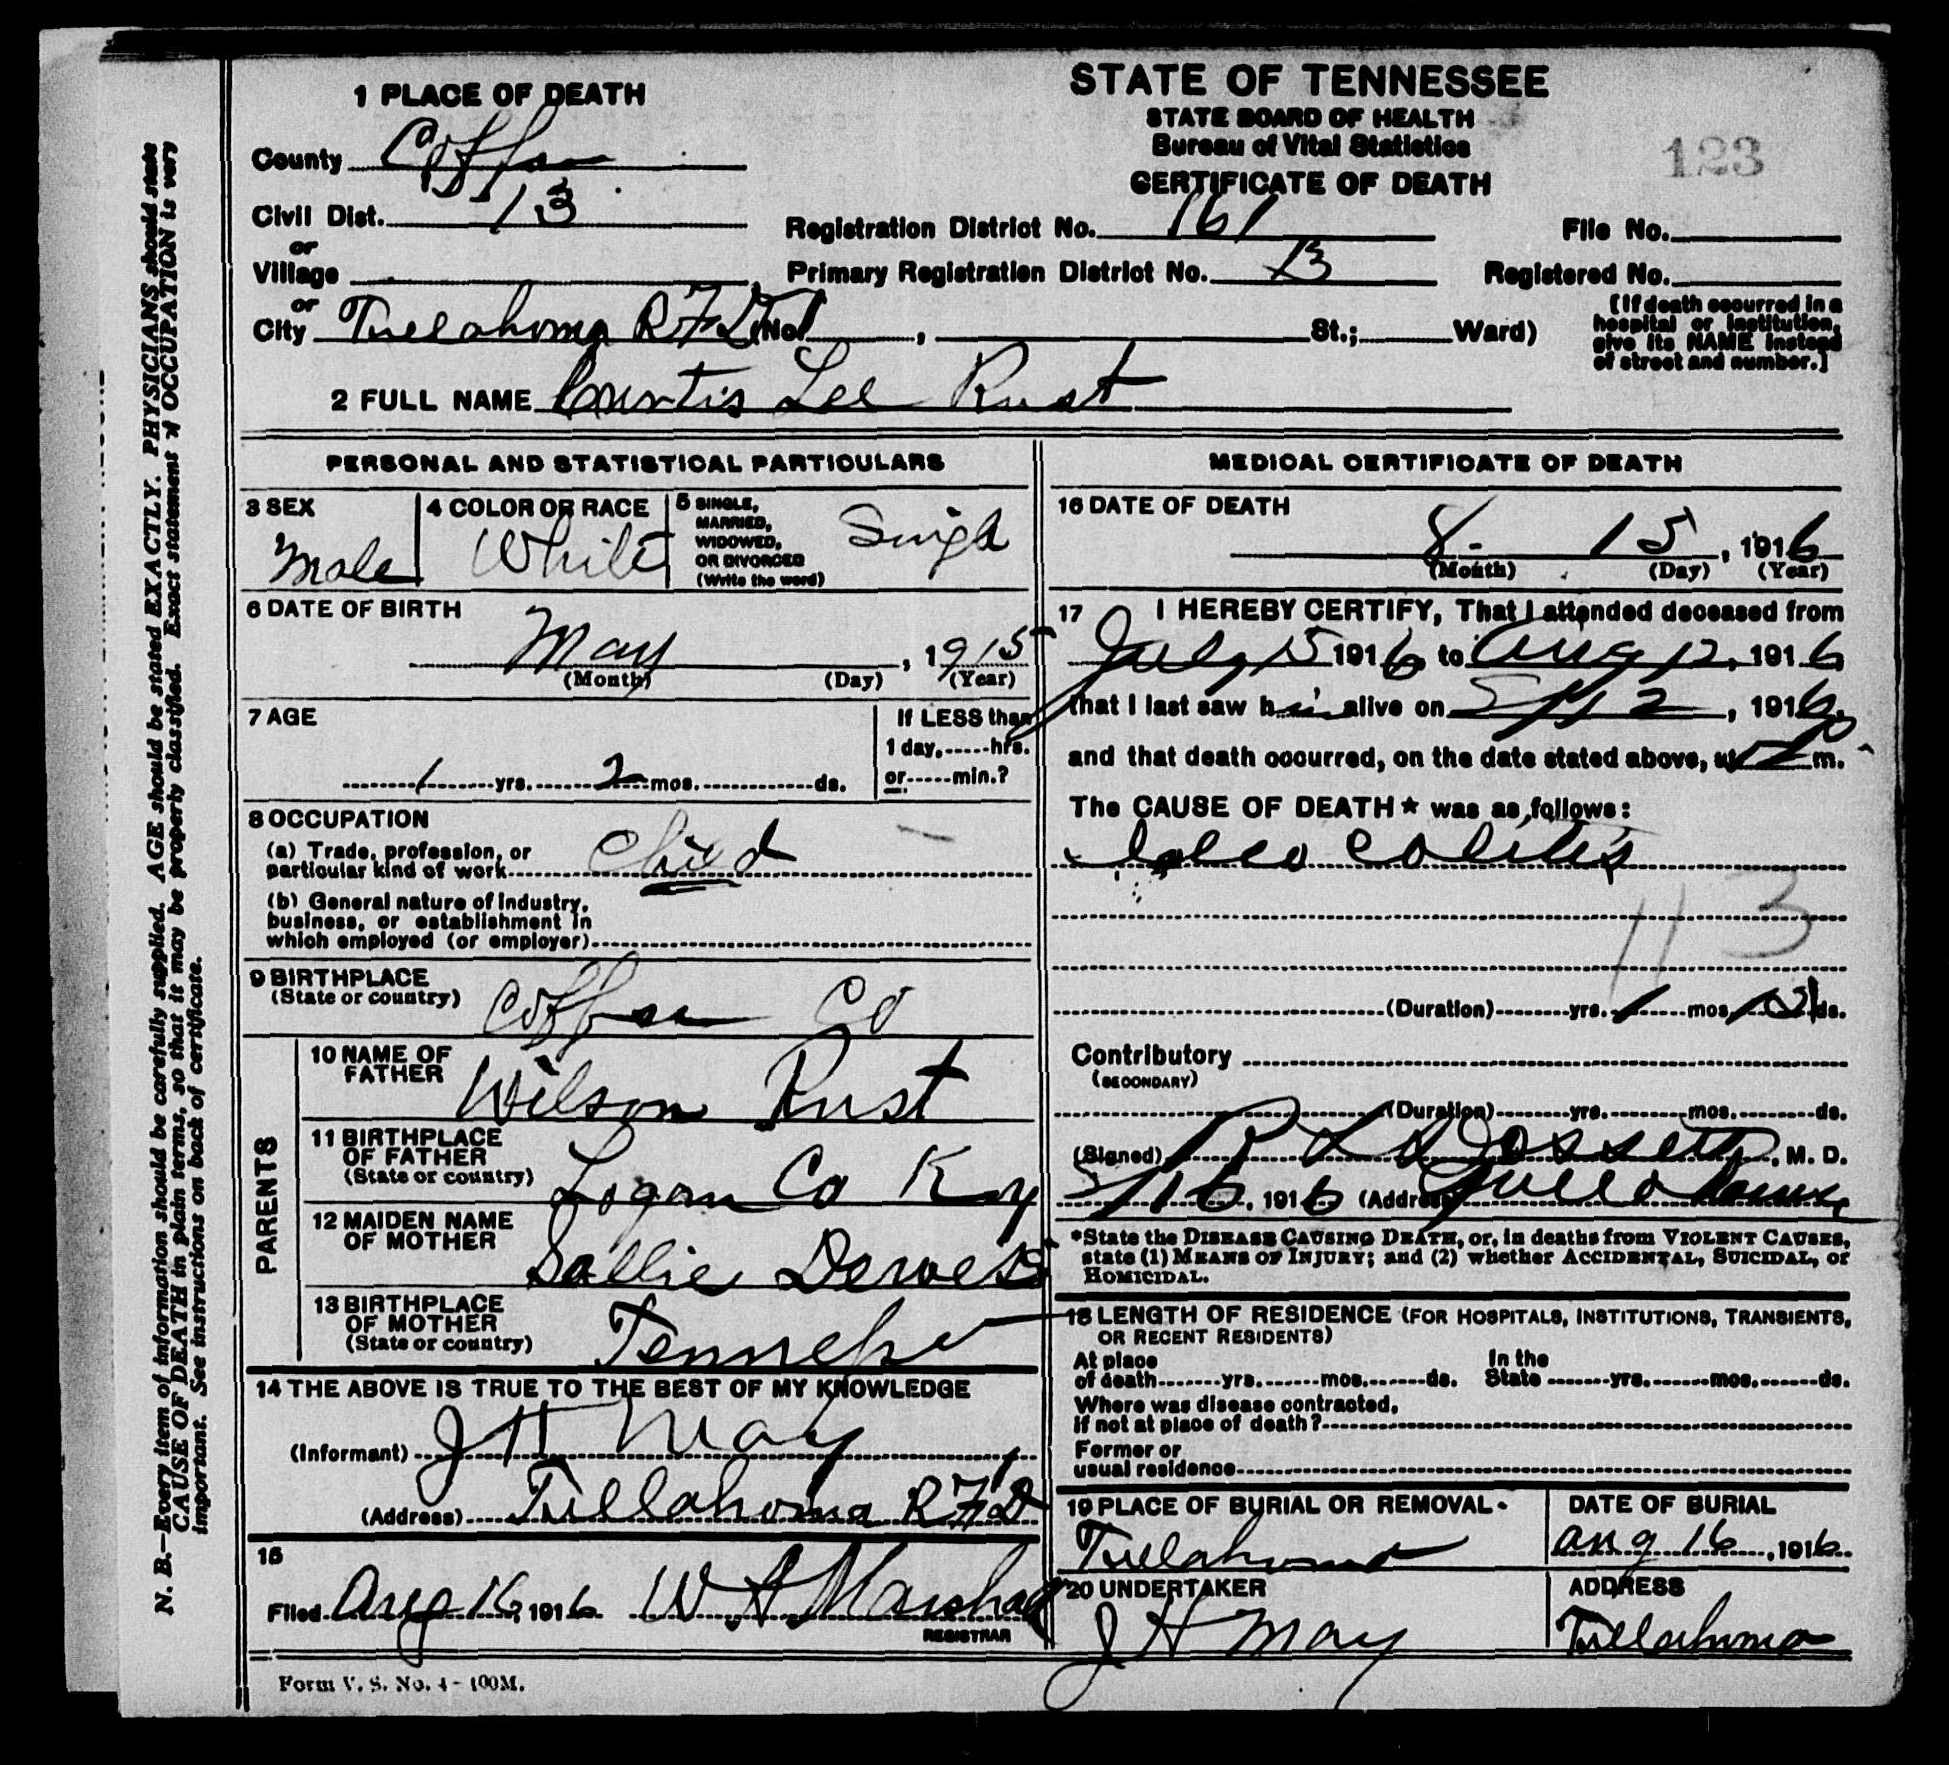 1 PLACE OF DEATH
STATE OF TENNESSEE
STATE BOARD OF HEALTH
Bureau of Vital Statistics
CERTIFICATE OF DEATH
123
County Coffee
Civil Dist. 13
or
Village
or
City Tullahoma RFD 1 (No. , St.; Ward)
Registration District No. 161
File No.
Primary Registration District No. 13
Registered No.
[If death occurred in a
hospital or institution,
give its NAME instead
of street and number.]
2 FULL NAME Curtis Lee Rust
PERSONAL AND STATISTICAL PARTICULARS
3 SEX
Male
4 COLOR OR RACE
White
5 SINGLE,
MARRIED,
WIDOWED,
OR DIVORCED
(Write the word)
Single
6 DATE OF BIRTH
May , 1915
(Month) (Day) (Year)
7 AGE
1 yrs. 2 mos. ds.
If LESS than
1 day, hrs.
or min.?
8 OCCUPATION
(a) Trade, profession, or
particular kind of work Child
(b) General nature of industry,
business, or establishment in
which employed (or employer)
9 BIRTHPLACE
(State or country) Coffee Co
PARENTS
10 NAME OF
FATHER Wilson Rust
11 BIRTHPLACE
OF FATHER
(State or country) Logan Co Ky
12 MAIDEN NAME
OF MOTHER Sallie
13 BIRTHPLACE
OF MOTHER
(State or country)
14 THE ABOVE IS TRUE TO THE BEST OF MY KNOWLEDGE
(Informant) J H May
(Address) Tullahoma RFD 1
15
Filed Aug 16, 1916 W A Marshall
REGISTRAR
Form V. S. No. 4-100M.
MEDICAL CERTIFICATE OF DEATH
16 DATE OF DEATH
8- 15, 1916
(Month) (Day) (Year)
17 I HEREBY CERTIFY, That I attended deceased from
July 15 1916, to Aug 12, 1916,
that I last saw him alive on , 1916,
and that death occurred, on the date stated above, at m.
The CAUSE OF DEATH* was as follows:
Ileo colitis
113
(Duration) yrs. 1 mos. ds.
Contributory
(SECONDARY)
(Duration) yrs. mos. ds.
(Signed) , M. D.
, 1916 (Address) Tullahoma
*State the DISEASE CAUSING DEATH, or, in deaths from VIOLENT CAUSES,
state (1) MEANS OF INJURY; and (2) whether ACCIDENTAL, SUICIDAL, or
HOMICIDAL.
18 LENGTH OF RESIDENCE (FOR HOSPITALS, INSTITUTIONS, TRANSIENTS,
OR RECENT RESIDENTS)
At place
of death yrs. mos. ds.
In the
State yrs. mos. ds.
Where was disease contracted,
if not at place of death?
Former or
usual residence
19 PLACE OF BURIAL OR REMOVAL
Tullahoma
DATE OF BURIAL
Aug 16, 1916
20 UNDERTAKER
J H May
ADDRESS
Tullahoma
N. B.—Every item of information should be carefully supplied. AGE should be stated EXACTLY. PHYSICIANS should state
CAUSE OF DEATH in plain terms, so that it may be properly classified. Exact statement of OCCUPATION is very
important. See instructions on back of certificate.